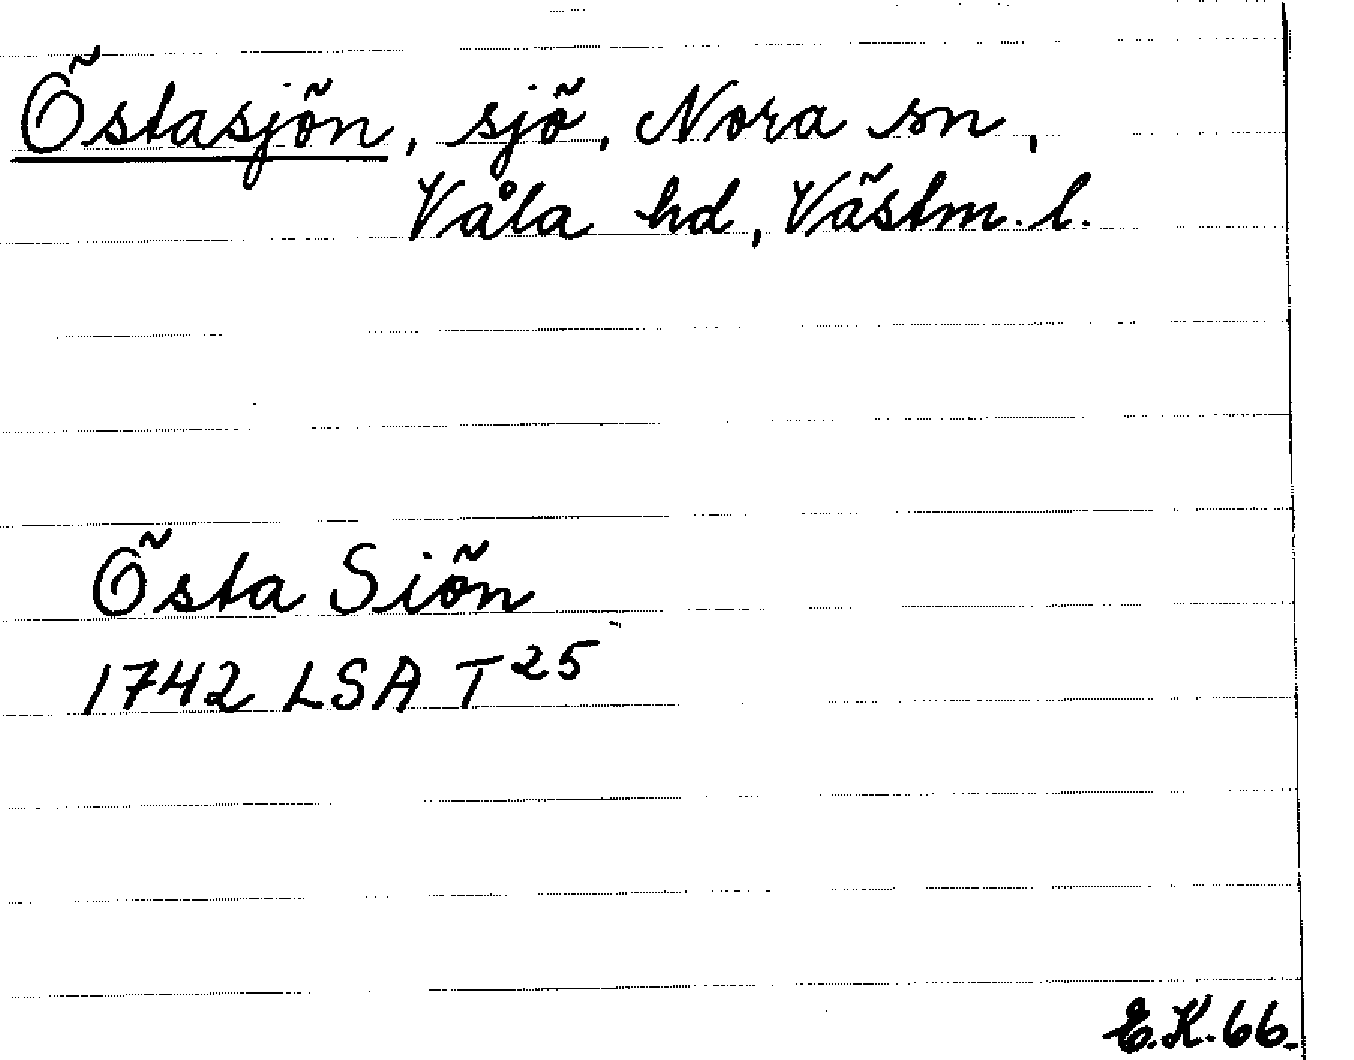 Östasjön, sjö, Nora sn,
Våla hd, Västm. l.
Östa Siön
1742 LSA T 25
E.K. 66.